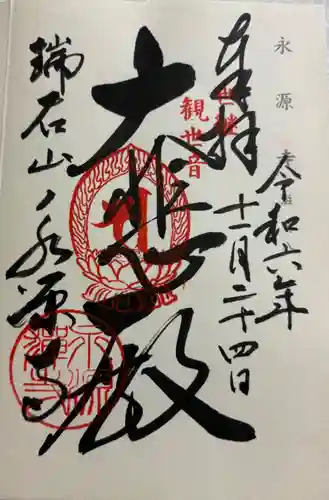 永源寺
奉拝
令和六年
十一月二十四日
世継
観世音
大悲殿
瑞石山
永源寺